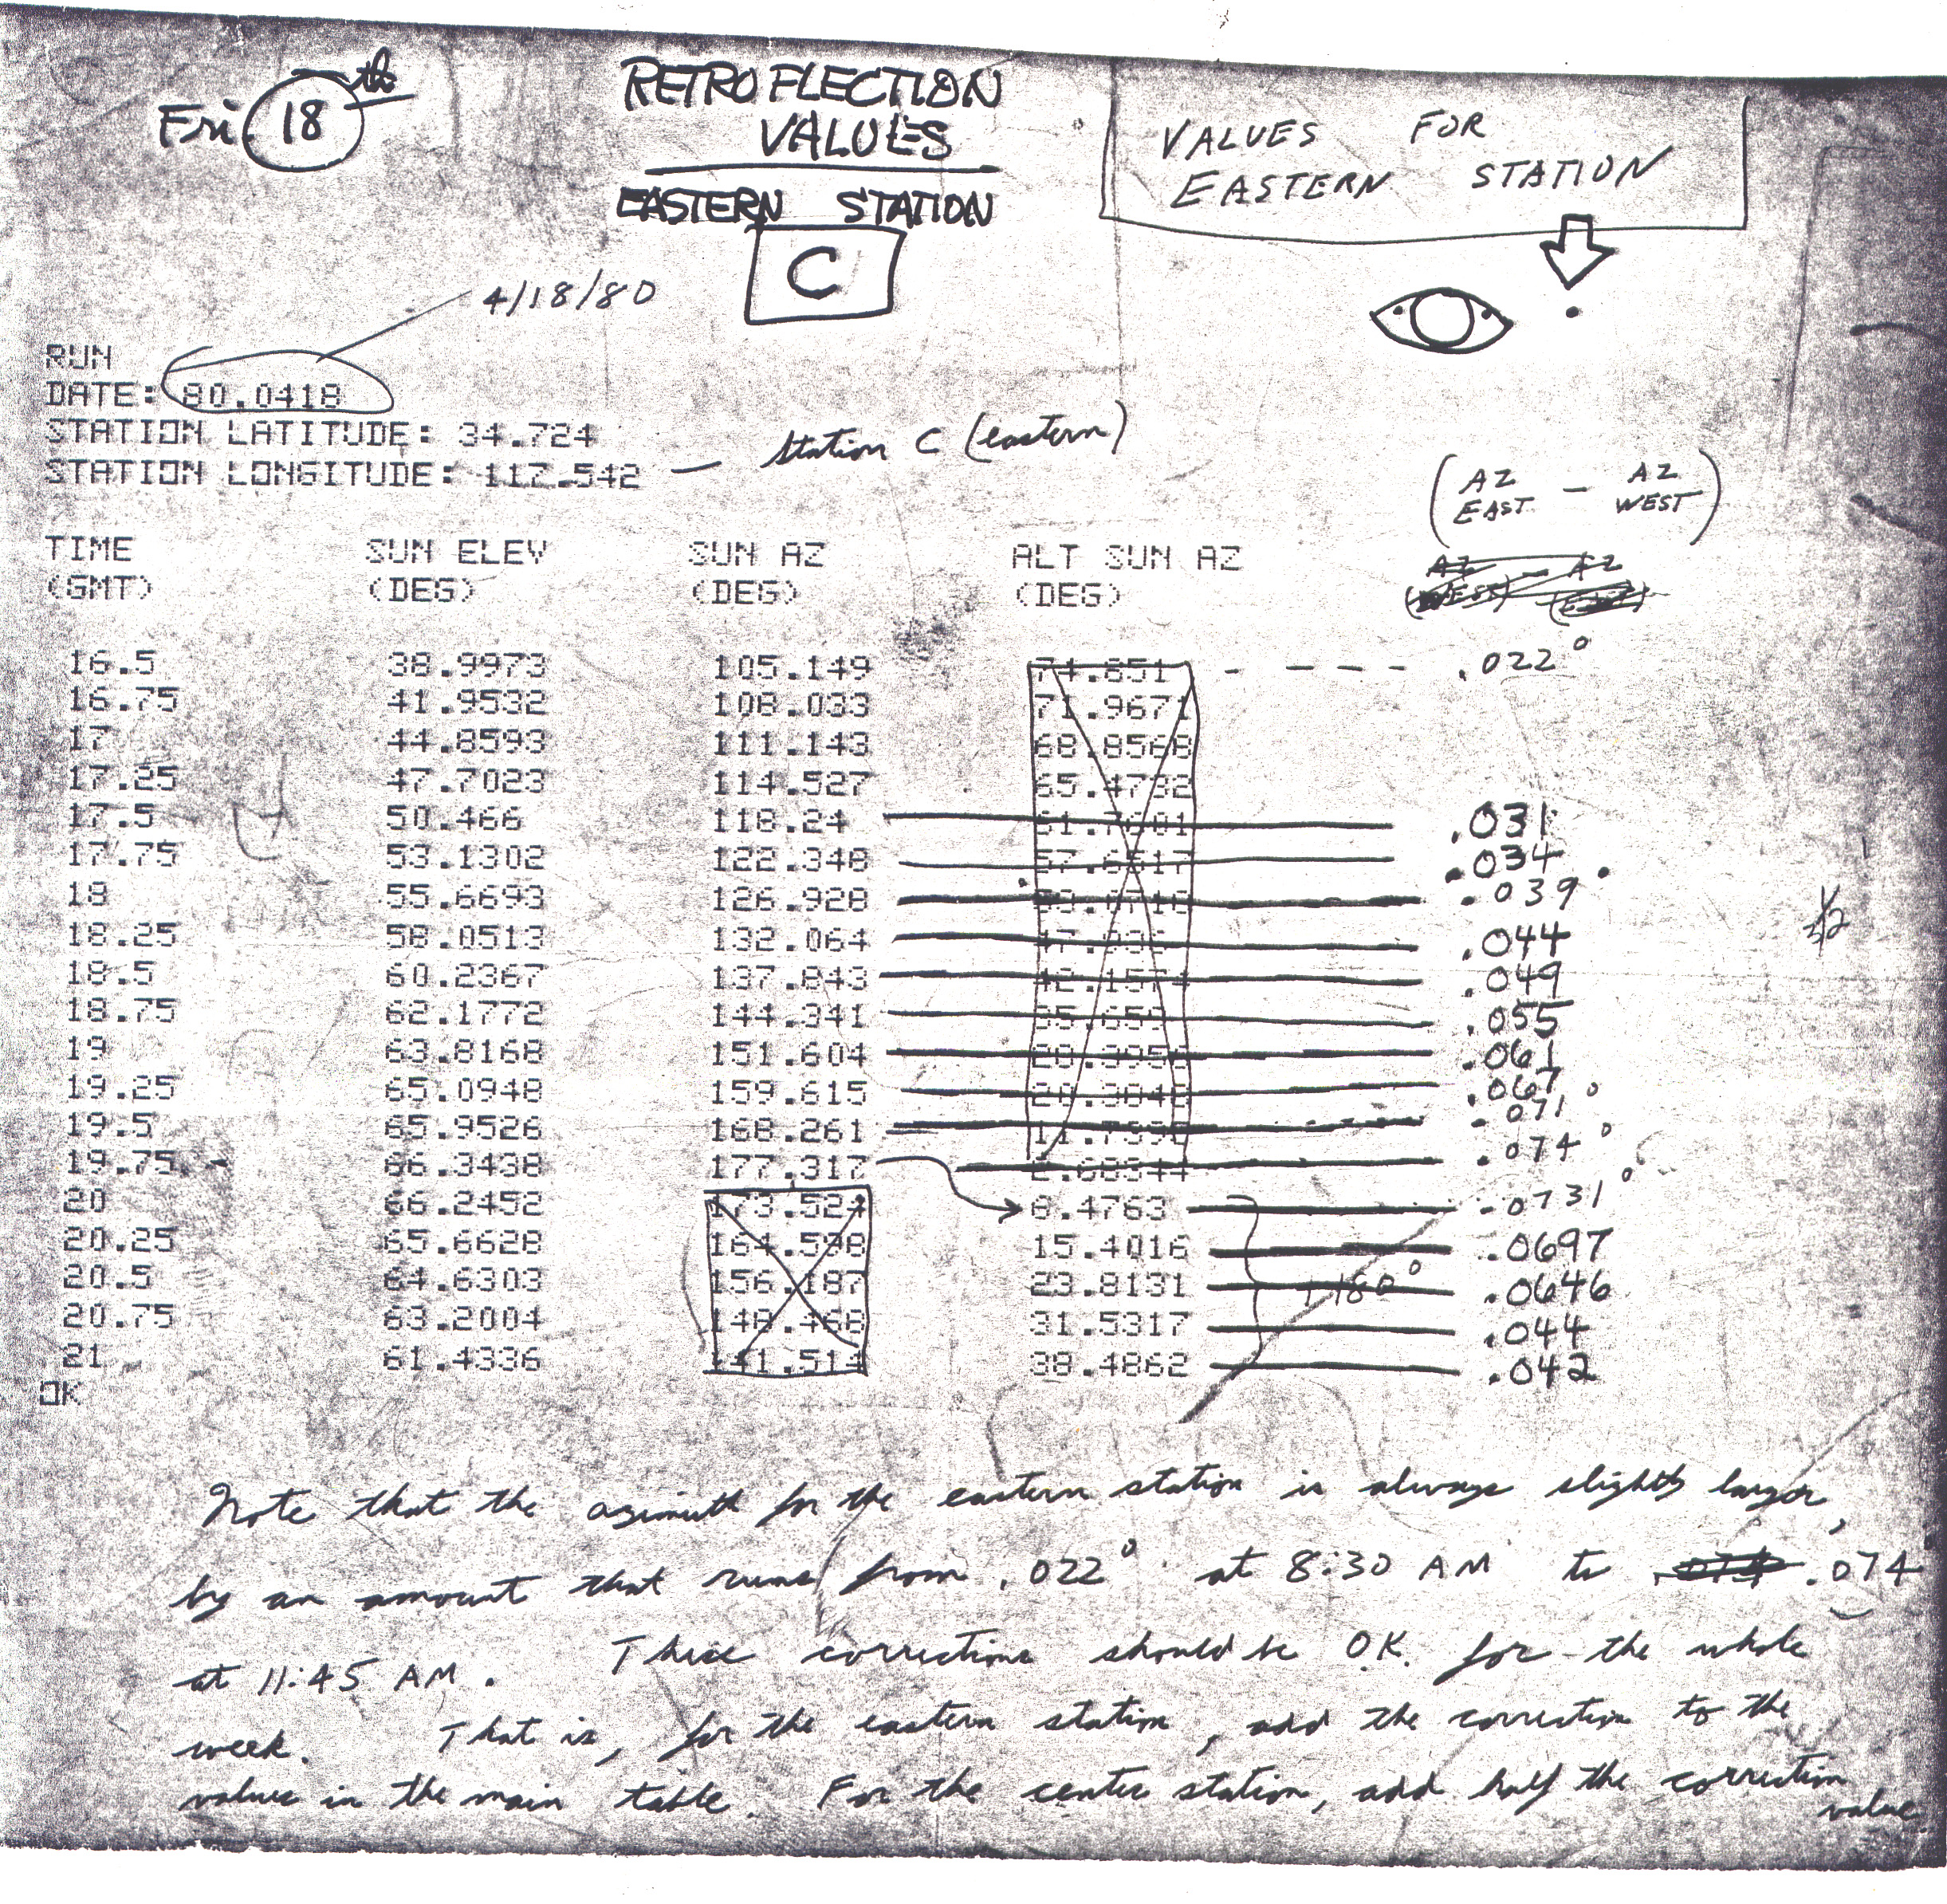 Fri. 18th
RETROFLECTION
VALUES
EASTERN STATION
C
VALUES FOR
EASTERN STATION
4/18/80
RUN
DATE: 80.0418
STATION LATITUDE: 34.724
STATION LONGITUDE: 117.542 — Station C (eastern)
(AZ EAST — AZ WEST)
TIME SUN ELEV SUN AZ ALT SUN AZ
(GMT) (DEG) (DEG) (DEG)
16.5 38.9973 105.149 74.851 - - - - .022°
16.75 41.9532 108.033 71.9671
17 44.8593 111.143 68.8568
17.25 47.7023 114.527 65.4732
17.5 50.466 118.24 .031
17.75 53.1302 122.348 57.6517 .034
18 55.6693 126.928 .039
18.25 58.0513 132.064 .044
18.5 60.2367 137.843 42.1574 .049
18.75 62.1772 144.341 35.659 .055
19 63.8168 151.604 .061
19.25 65.0948 159.615 .067
19.5 65.9526 168.261 .071°
19.75 66.3438 177.317 2.68344 .074°
20 66.2452 173.524 8.4763 .0731°
20.25 65.6628 164.598 15.4016 .0697
20.5 64.6303 156.187 23.8131 +180° .0646
20.75 63.2004 148.468 31.5317 .044
21 61.4336 141.514 38.4862 .042
OK
Note that the azimuth for the eastern station is always slightly larger,
by an amount that runs from .022° at 8:30 AM to .074
at 11:45 AM. These corrections should be O.K. for the whole
week. That is, for the eastern station, add the correction to the
value in the main table. For the center station, add half the correction
value